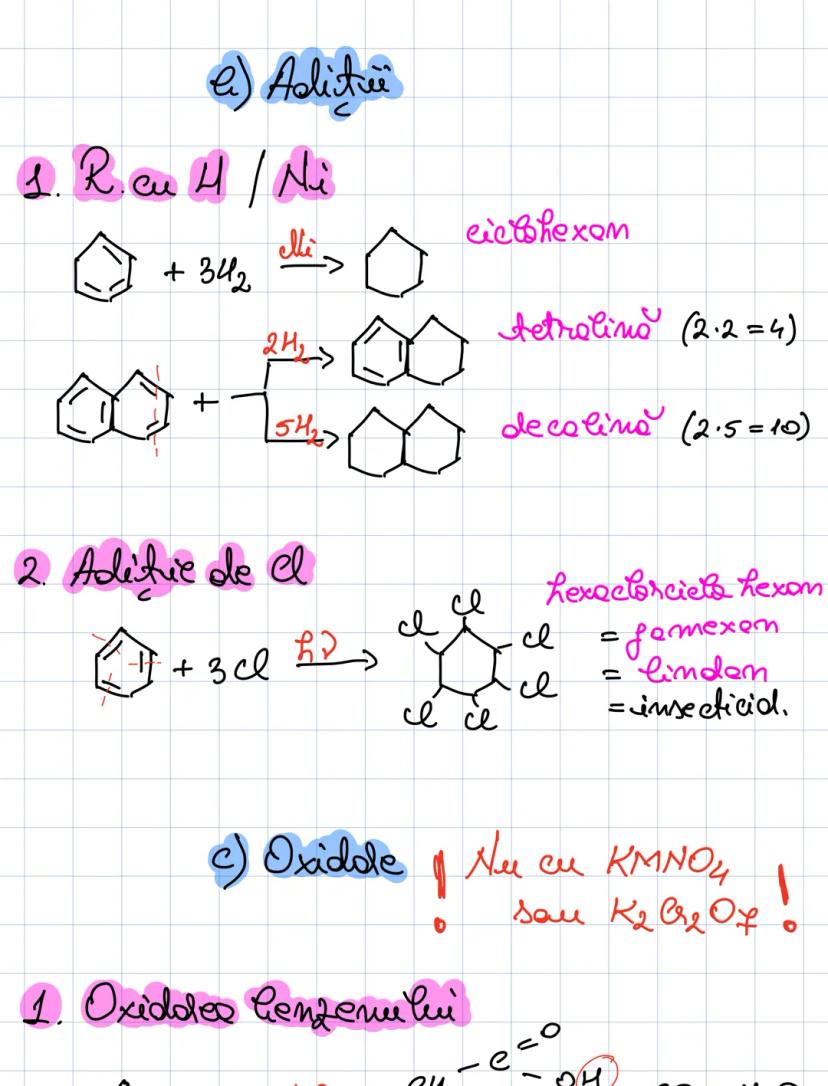 b) Adiții
1. R. cu H / Ni
+ 3H2 Ni ciclohexan
2H2 tetralină (2·2=4)
+
5H2 decalină (2·5=10)
2. Adiție de Cl
+ 3Cl hν
Cl Cl Cl Cl Cl Cl
hexaclorciclohexan
= gamexan
= lindan
= insecticid.
c) Oxidare ! Nu cu KMNO4
sau K2Cr2O7 !
1. Oxidarea benzenului
C=O
OH